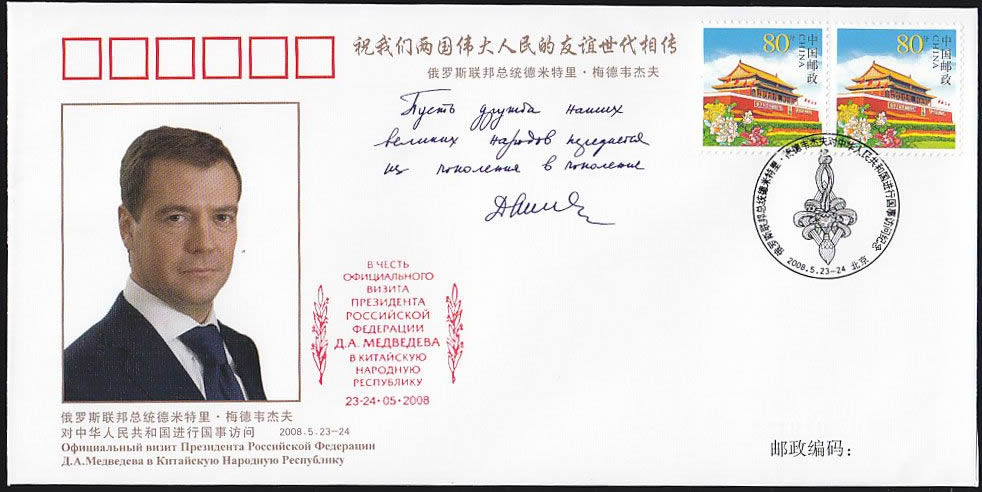 祝我们两国伟大人民的友谊世代相传
俄罗斯联邦总统德米特里·梅德韦杰夫
Пусть дружба наших
великих народов передается
из поколения в поколение
80分
中国邮政
CHINA
80分
中国邮政
CHINA
俄罗斯联邦总统德米特里·梅德韦杰夫对中华人民共和国进行国事访问纪念
2008.5.23-24 北京
В ЧЕСТЬ
ОФИЦИАЛЬНОГО
ВИЗИТА
ПРЕЗИДЕНТА
РОССИЙСКОЙ
ФЕДЕРАЦИИ
Д.А. МЕДВЕДЕВА
В КИТАЙСКУЮ
НАРОДНУЮ
РЕСПУБЛИКУ
23-24·05·2008
俄罗斯联邦总统德米特里·梅德韦杰夫
对中华人民共和国进行国事访问 2008.5.23-24
Официальный визит Президента Российской Федерации
Д.А.Медведева в Китайскую Народную Республику
邮政编码：